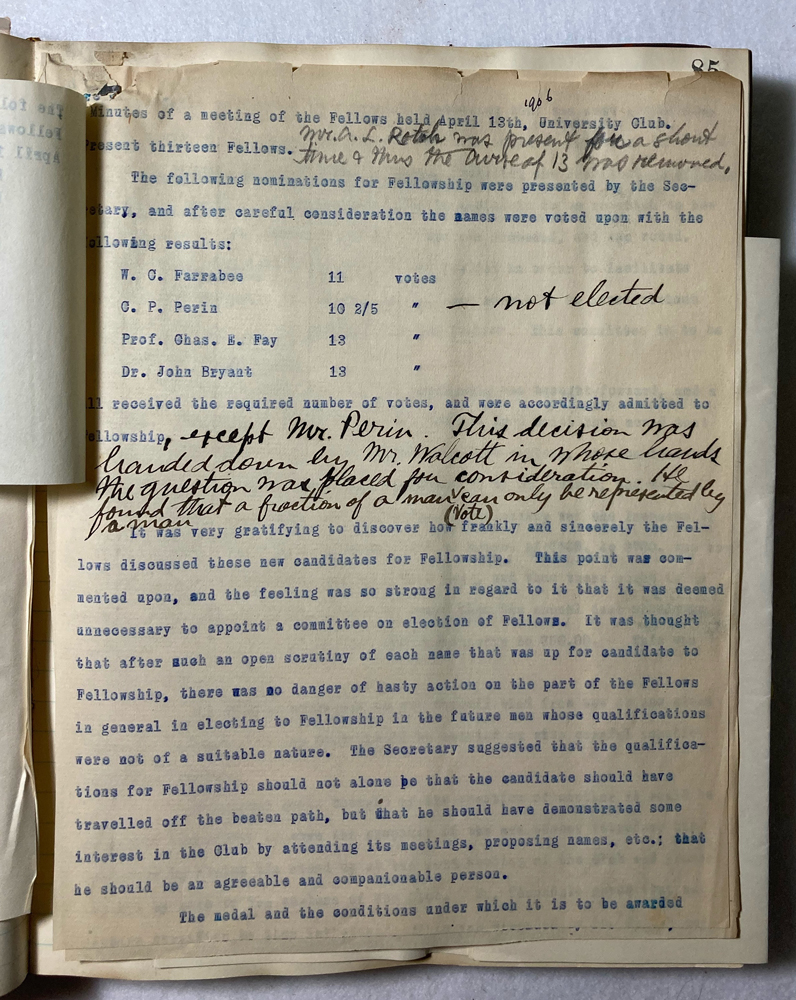 85
1906
Minutes of a meeting of the Fellows held April 13th, University Club.
Mr. A. L. Rotch was present for a short
Present thirteen Fellows.
time & thus the curse of 13 was removed.
The following nominations for Fellowship were presented by the Sec-
retary, and after careful consideration the names were voted upon with the
following results:
W. C. Farrabee 11 votes
C. P. Perin 10 2/5 " — not elected
Prof. Chas. E. Fay 13 "
Dr. John Bryant 13 "
All received the required number of votes, and were accordingly admitted to
Fellowship, except Mr. Perin. This decision was
handed down by Mr. Walcott in whose hands
the question was placed for consideration. He
found that a fraction of a man's can only be represented by
a man (Vote)
It was very gratifying to discover how frankly and sincerely the Fel-
lows discussed these new candidates for Fellowship. This point was com-
mented upon, and the feeling was so strong in regard to it that it was deemed
unnecessary to appoint a committee on election of Fellows. It was thought
that after such an open scrutiny of each name that was up for candidate to
Fellowship, there was no danger of hasty action on the part of the Fellows
in general in electing to Fellowship in the future men whose qualifications
were not of a suitable nature. The Secretary suggested that the qualifica-
tions for Fellowship should not alone be that the candidate should have
travelled off the beaten path, but that he should have demonstrated some
interest in the Club by attending its meetings, proposing names, etc.; that
he should be an agreeable and companionable person.
The medal and the conditions under which it is to be awarded